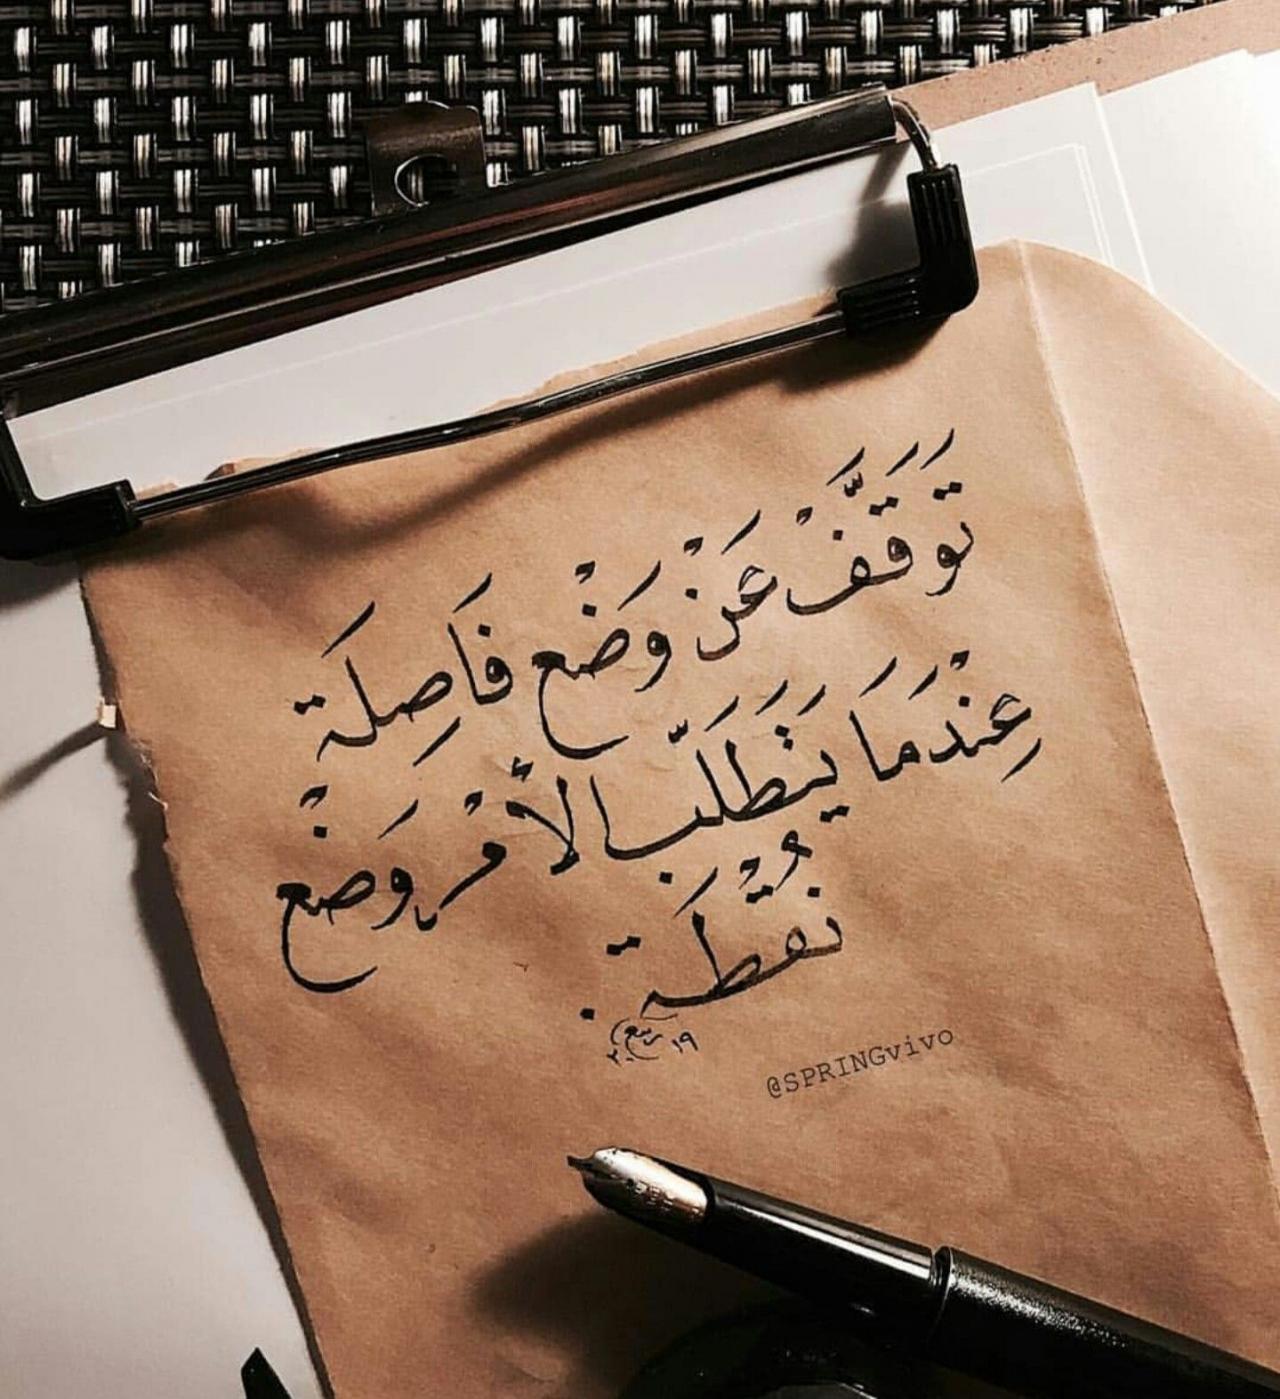 تَوَقَّفْ عَنْ وَضْعِ فَاصِلَة
عِنْدَمَا يَتَطَلَّب الأَمْر وَضْعِ
نُقْطَة.
١٩ ربيع ٢٠
@SPRINGvivo